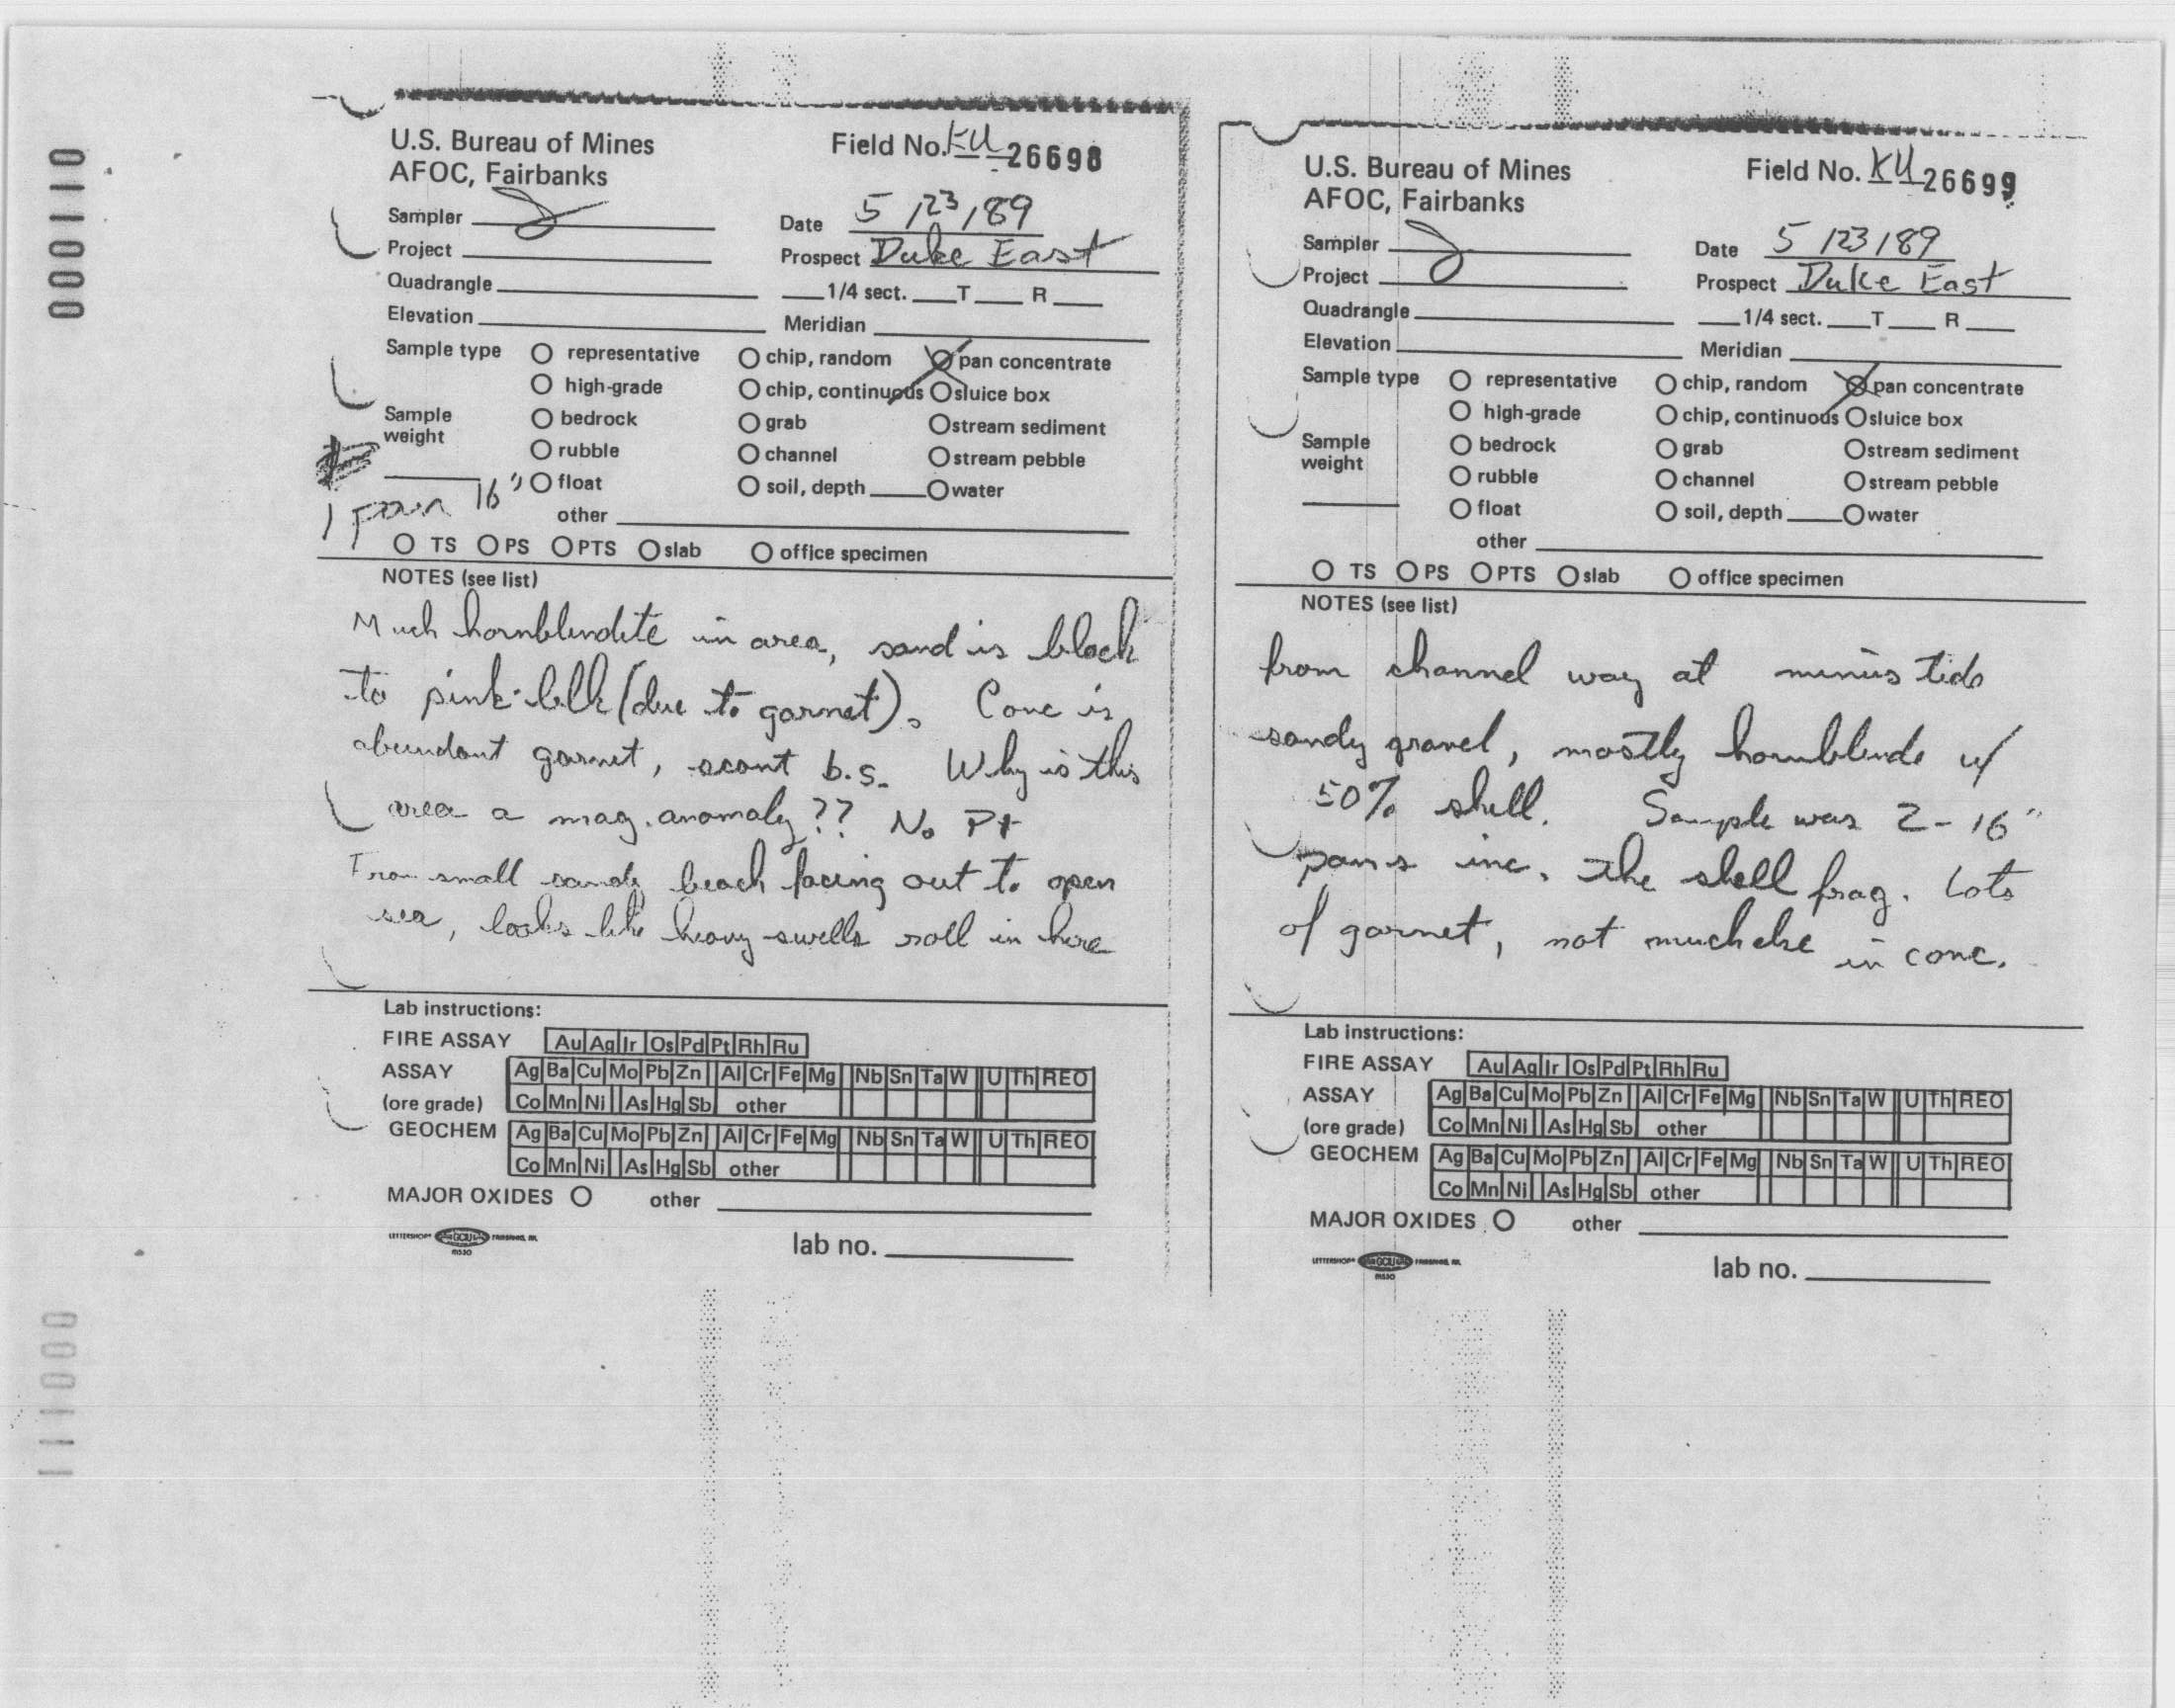 000110
U.S. Bureau of Mines
AFOC, Fairbanks
Field No. KU 26698
Sampler
Date 5/23/89
Project
Prospect Duke East
Quadrangle
1/4 sect. T R
Elevation
Meridian
Sample type
O representative O chip, random O pan concentrate
O high-grade O chip, continuous O sluice box
Sample weight
O bedrock O grab O stream sediment
O rubble O channel O stream pebble
1 pan 16"
O float O soil, depth O water
other
O TS O PS O PTS O slab O office specimen
NOTES (see list)
Much hornblendite in area, sand is black
to pink-blk (due to garnet). Conc is
abundant garnet, scant b.s. Why is this
area a mag. anomaly?? No Pt
From small sandy beach facing out to open
sea, looks like heavy swells roll in here
Lab instructions:
FIRE ASSAY Au Ag Ir Os Pd Pt Rh Ru
ASSAY Ag Ba Cu Mo Pb Zn Al Cr Fe Mg Nb Sn Ta W U Th REO
(ore grade) Co Mn Ni As Hg Sb other
GEOCHEM Ag Ba Cu Mo Pb Zn Al Cr Fe Mg Nb Sn Ta W U Th REO
Co Mn Ni As Hg Sb other
MAJOR OXIDES O other
lab no.
U.S. Bureau of Mines
AFOC, Fairbanks
Field No. KU 26699
Sampler
Date 5/23/89
Project
Prospect Duke East
Quadrangle
1/4 sect. T R
Elevation
Meridian
Sample type
O representative O chip, random O pan concentrate
O high-grade O chip, continuous O sluice box
Sample weight
O bedrock O grab O stream sediment
O rubble O channel O stream pebble
O float O soil, depth O water
other
O TS O PS O PTS O slab O office specimen
NOTES (see list)
from channel way at minus tide
sandy gravel, mostly hornblende w/
50% shell. Sample was 2-16"
pans inc. the shell frag. Lots
of garnet, not much else in conc.
Lab instructions:
FIRE ASSAY Au Ag Ir Os Pd Pt Rh Ru
ASSAY Ag Ba Cu Mo Pb Zn Al Cr Fe Mg Nb Sn Ta W U Th REO
(ore grade) Co Mn Ni As Hg Sb other
GEOCHEM Ag Ba Cu Mo Pb Zn Al Cr Fe Mg Nb Sn Ta W U Th REO
Co Mn Ni As Hg Sb other
MAJOR OXIDES O other
lab no.